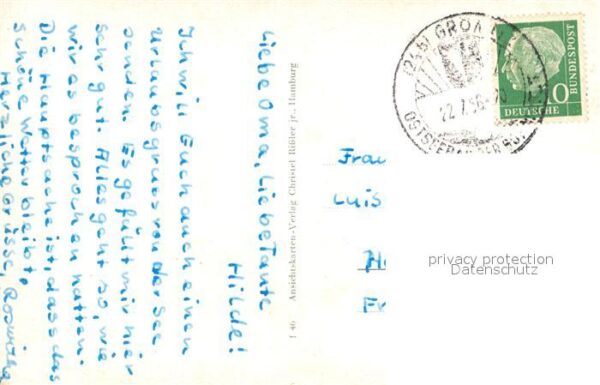 Liebe Oma, Liebe Tante
Hilde!
Ich will Euch auch einen
Urlaubsgruss von der See
senden. Es gefällt mir hier
sehr gut. Alles geht so, wie
wir es besprochen hatten.
Die Hauptsache ist, dass das
schöne Wetter bleibt.
Herzliche Grüsse, Roswitha
146 Ansichtskarten-Verlag Christel Rißler jr., Hamburg
(24b) GRÖM
22.7.58
OSTSEEBAD
DEUTSCHE BUNDESPOST
10
Frau
Luis
H
Fr
privacy protection
Datenschutz